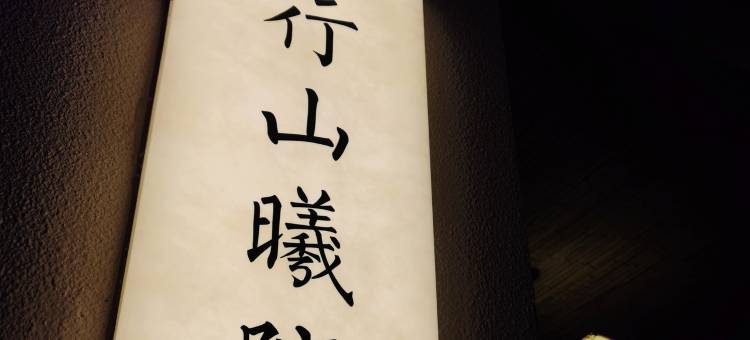 行山曦